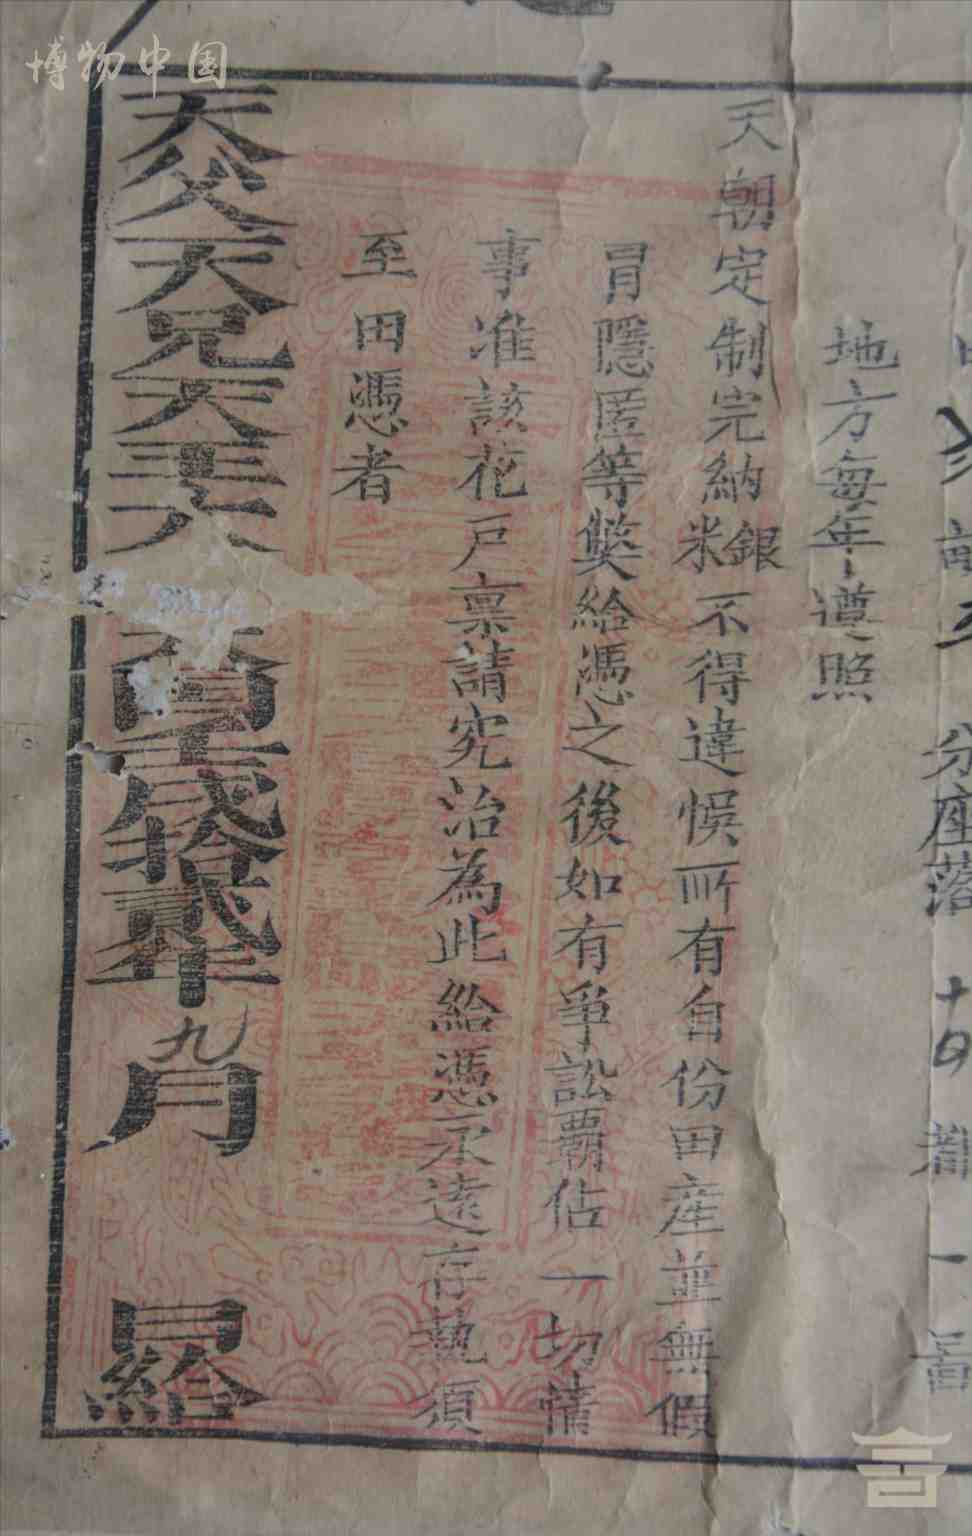 博物中国
分座落
地方每年遵照
天朝定制完納米銀不得違悞所有自份田産並無假
冐隱匿等獘給憑之後如有爭訟覇佔一切情
事准該花戸稟請究治為此給憑永遠存執須
至田憑者
天父天兄天王太
拾貳年九月
給